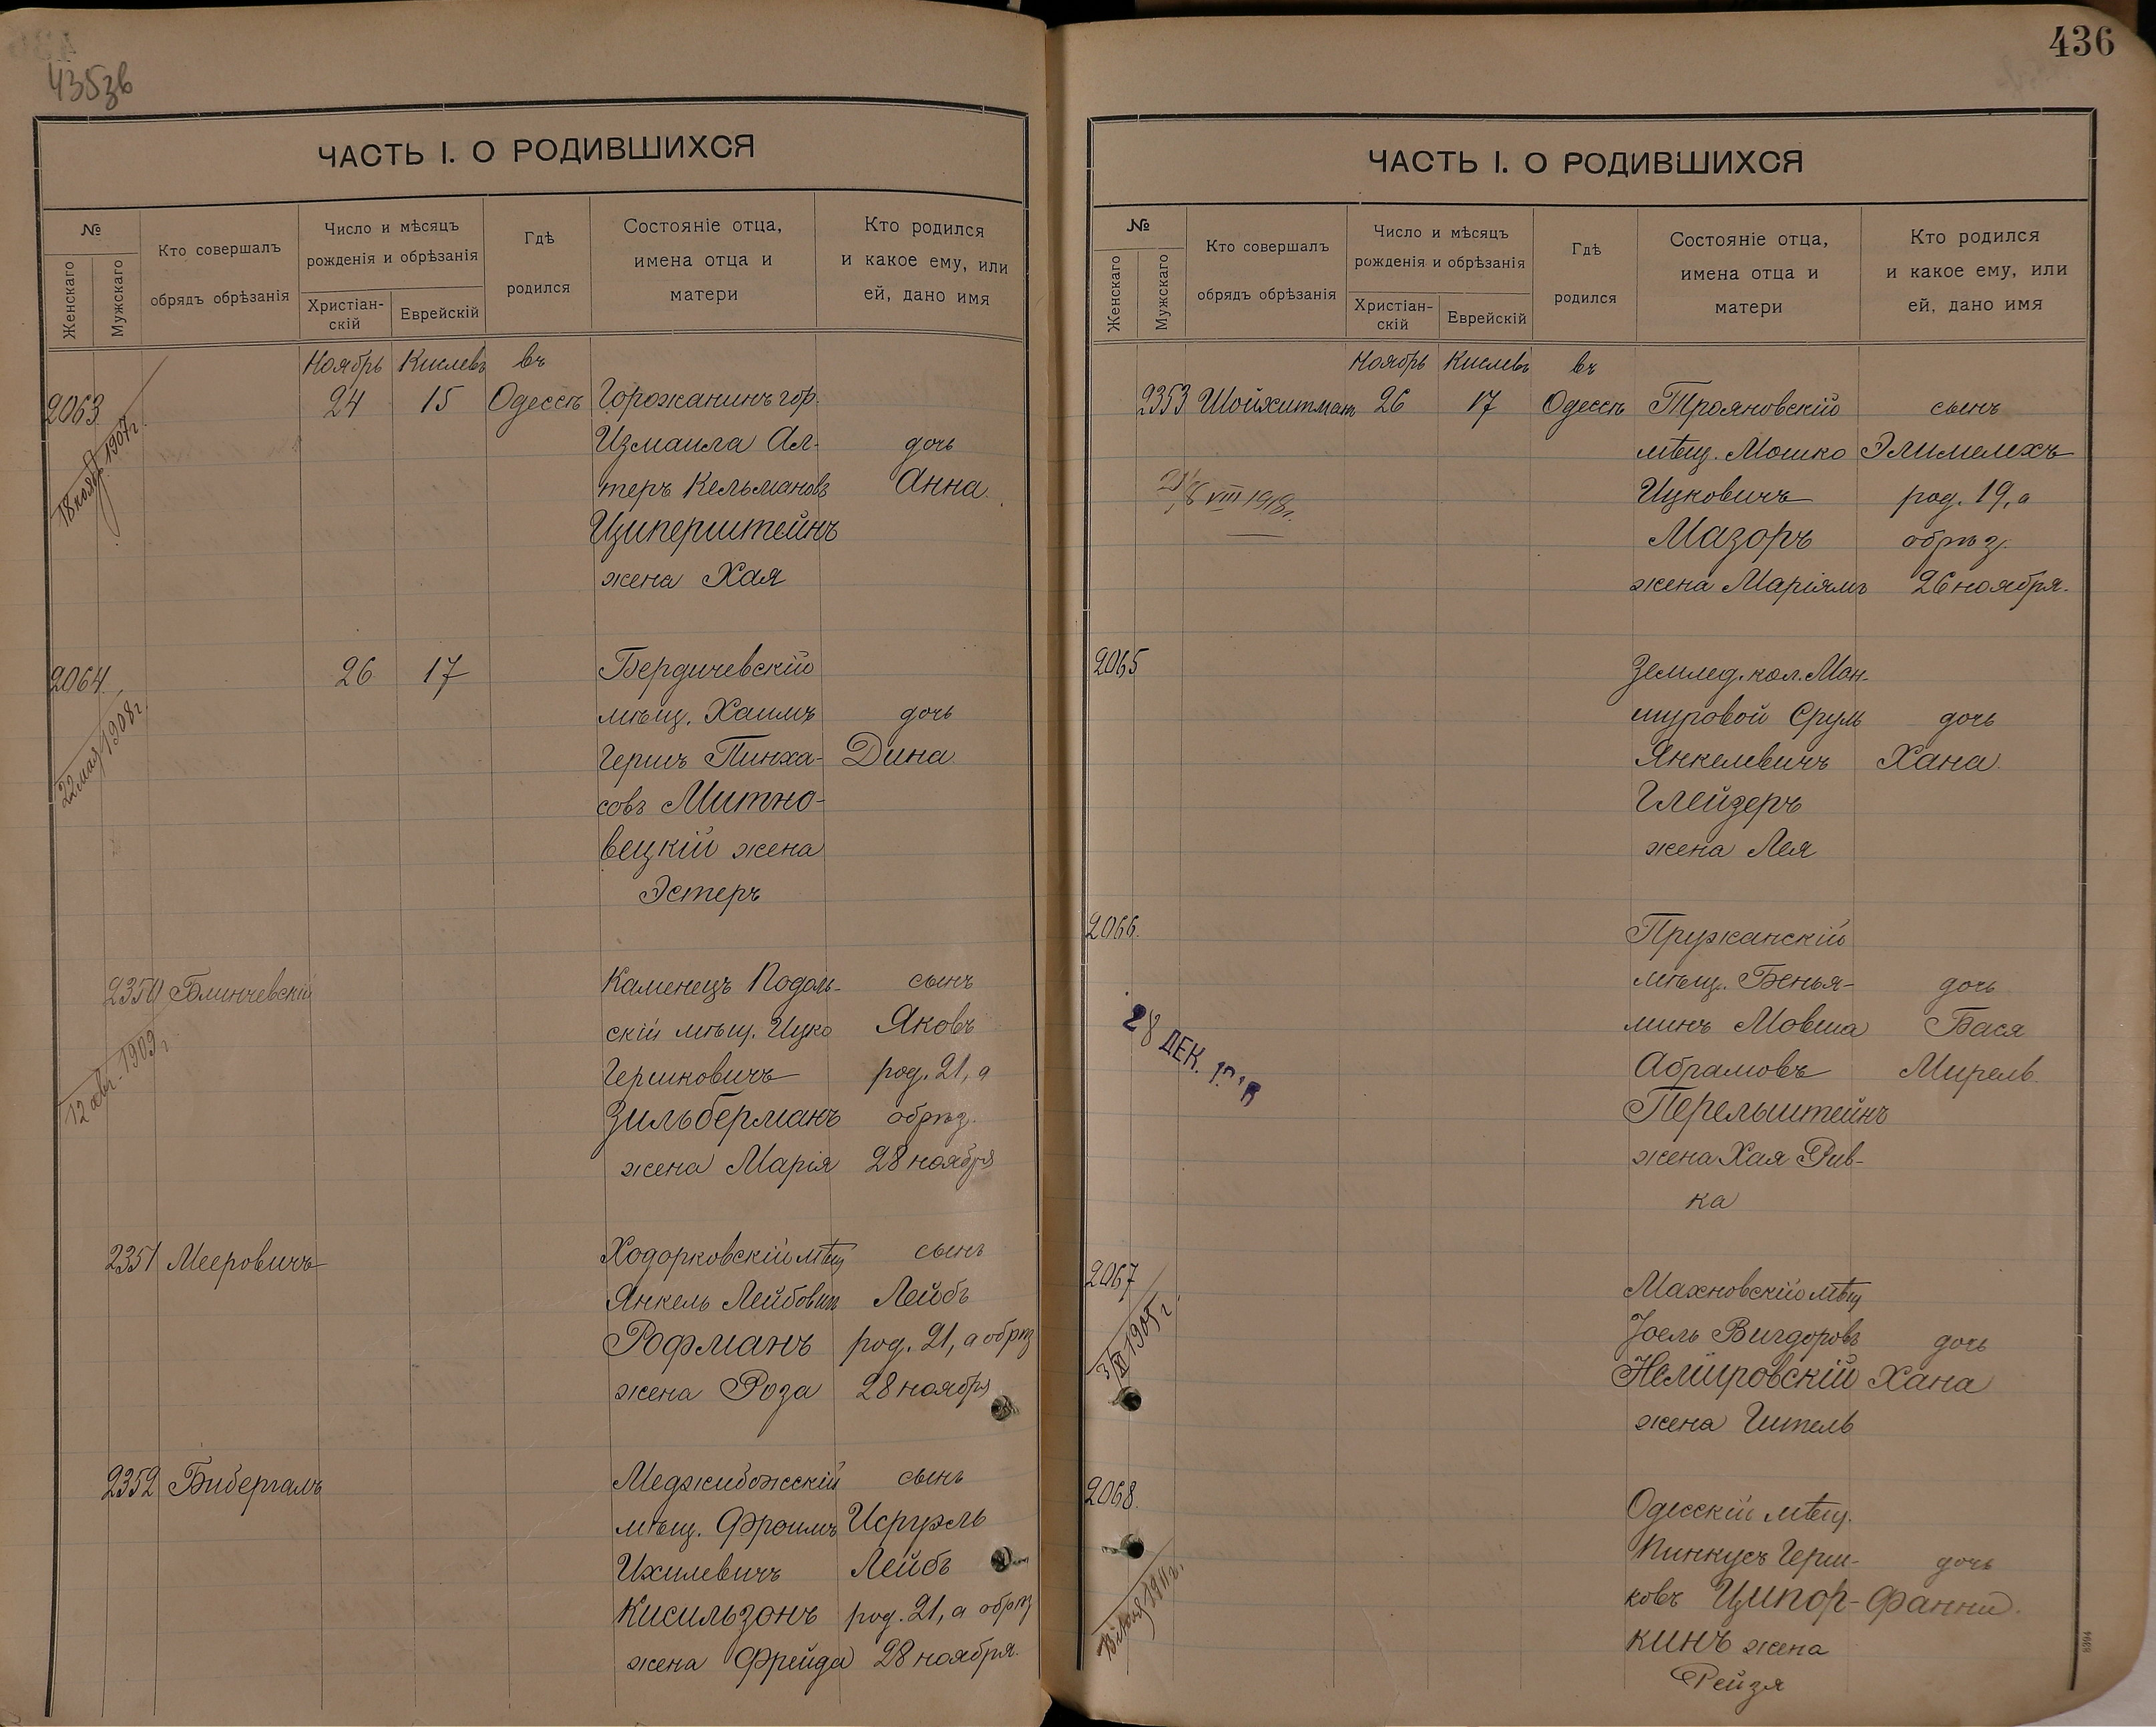 435зв
ЧАСТЬ I. О РОДИВШИХСЯ
№
Женскаго
Мужскаго
Кто совершалъ
обрядъ обрѣзанія
Число и мѣсяцъ
рожденія и обрѣзанія
Христіан-
скій
Еврейскій
Гдѣ
родился
Состояніе отца,
имена отца и
матери
Кто родился
и какое ему, или
ей, дано имя
Ноябрь Кислевъ въ
2063 24 15 Одессѣ Горожанинъ гор.
Измаила Ал- дочь
теръ Кельмановъ Анна.
Ципперштейнъ
жена Хая
18 ноябр. 1907 г.
2064 26 17 Бердичевскій
мѣщ. Хаимъ дочь
Гершъ Пинха- Дина
совъ Митно-
вецкій жена
Эстеръ
22 мая 1908 г.
2350 Блинчевскій Каменецъ Подоль- сынъ
скій мѣщ. Ицко Яковъ
Гершковичъ род. 21, а
Зильберманъ обрѣз.
жена Марія 28 ноября
1909 г.
2351 Мееровичъ Ходорковскій мѣщ сынъ
Янкель Лейбовичъ Лейбъ
Рофманъ род. 21, а обрѣз
жена Роза 28 ноября
2352 Бибергалъ Меджибожскій сынъ
мѣщ. Фроимъ Исруэль
Ихилевичъ Лейбъ
Кисильзонъ род. 21, а обрѣз
жена Фрейда 28 ноября.
436
ЧАСТЬ I. О РОДИВШИХСЯ
№
Женскаго
Мужскаго
Кто совершалъ
обрядъ обрѣзанія
Число и мѣсяцъ
рожденія и обрѣзанія
Христіан-
скій
Еврейскій
Гдѣ
родился
Состояніе отца,
имена отца и
матери
Кто родился
и какое ему, или
ей, дано имя
Ноябрь Кислевъ въ
2353 Шойхитманъ 26 17 Одессѣ Трояновскій сынъ
мѣщ. Мошко Элимелехъ
Ицковичъ род. 19, а
Мазоръ обрѣз.
жена Маріямъ 26 ноября.
VIII 1918 г.
2065 Землед. кол. Ман-
шуровой Сруль дочь
Янкелевичъ Хана.
Глейзеръ
жена Лея
2066. Пружанскій
мѣщ. Бенья- дочь
минъ Мовша Бася
Абрамовъ Мирель.
Перельштейнъ
жена Хая Рив-
ка
28 ДЕК.
2067 Махновскій мѣщ
Іоель Вигдоровъ дочь
Немировскій Хана
жена Гитель
3/XI 1905 г.
2068. Одесскій мѣщ.
Пинкусъ Герш- дочь
ковъ Ципор- Фанни.
кинъ жена
Рейзя
1911 г.
8394